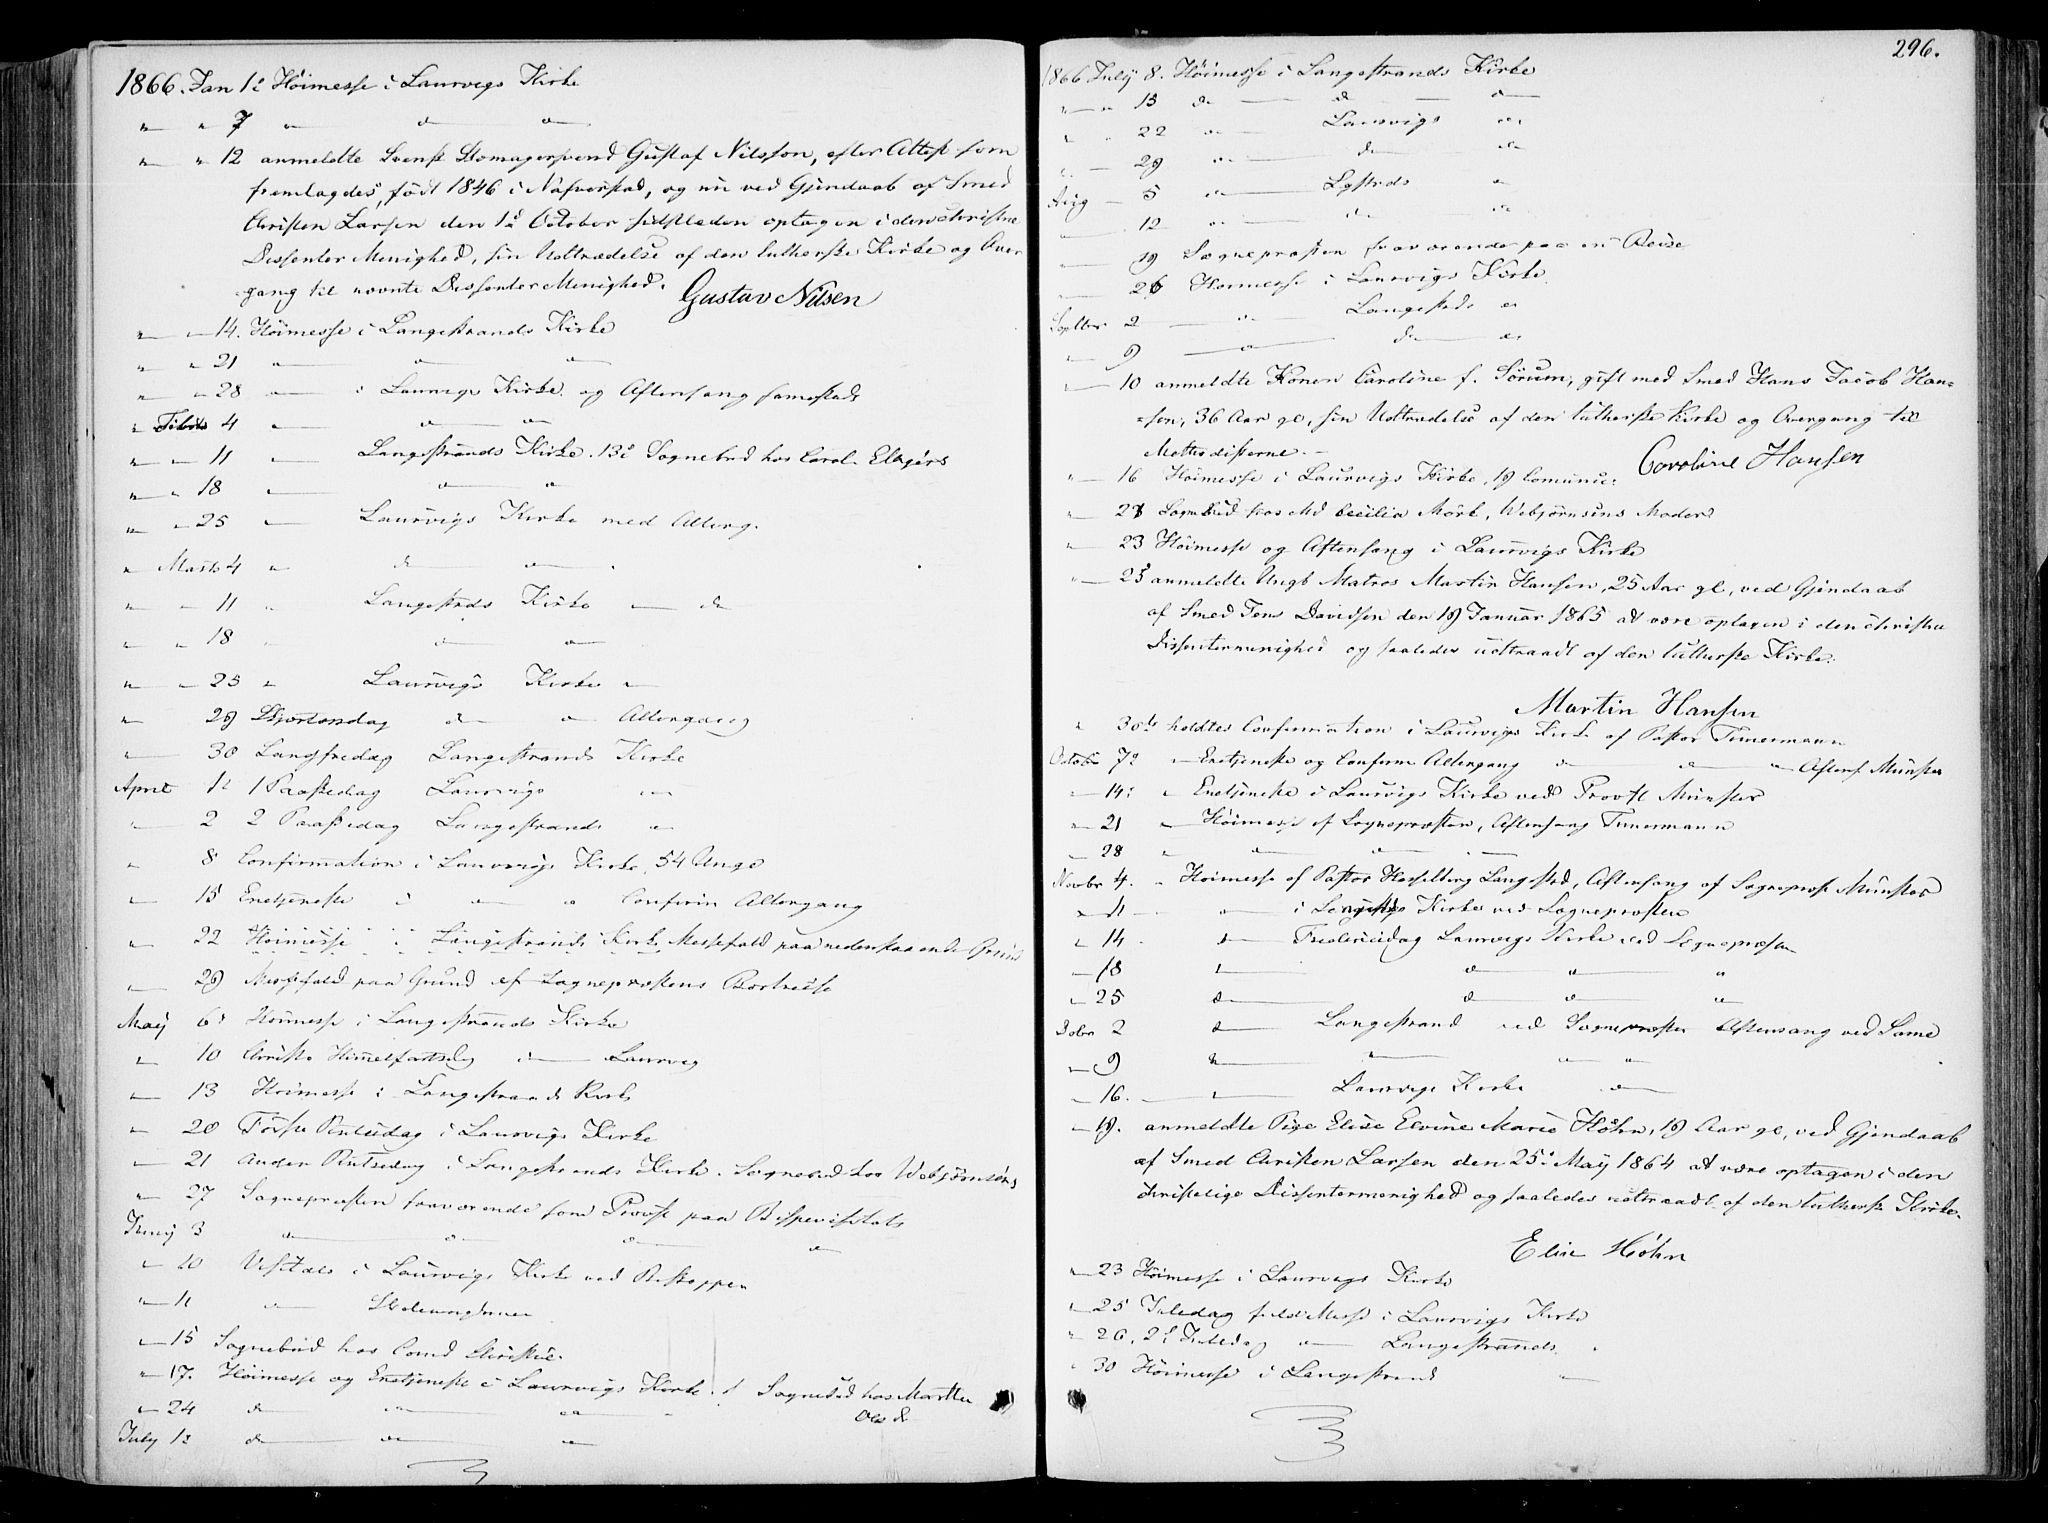 1866. Jan 1ẹ Höimesse i Laurvigs Kirke
" " 7 " d d
" " 12 anmeldte Svensk Skomagersvend Gustaf Nilsson, efter Attest som
fremlagdes, født 1846 i Nafverstad, og nu ved Gjendaab af Smed
Christen Larsen den 1ẹ October sidstleden optagen i den christne
Dissenter Menighed, sin Udtrædelse af den lutherske Kirke og Over
gang til nævnte Dissenter Menighed.
Gustav Nilsen
" " 14. Höimesse i Langestrands Kirke
" " 21 " " "
" " 28 " i Laurvigs Kirke og Aftensang sammesteds
" Febr 4 " " "
" " 11 " Langestrands Kirke. 13ẹ Sognebud hos Carol.
" " 18 " " "
" " 25 " Laurvigs Kirke med Alterg.
" Marts 4 " d "
" " 11 " Langestrds Kirke — d
" " 18 " " "
" " 25 " Laurvigs Kirke "
" 29 Skjærtorsdag d d Altergang
" 30 Langfredag Langestrands Kirke
April 1ẹ 1 Paaskedag Laurvigs "
" 2 2 Paaskedag Langestrands "
" 8 Confirmation i Laurvigs Kirke, 54 Unge
" 15 Enetjeneste i " " Confirm Altergang
" 22 Höimesse i Langestrands Kirke Messefald paa nedenstaaende
" 29 Messefald paa Grund af Sognepræstens Bortreise
Maÿ 6ẹ Höimesse i Langestrands Kirke
" 10 Christi Himmelfartsdag — Laurvig
" 13 Höimesse i Langestrands Kirke
" 20 Første Pintsedag i Laurvigs Kirke
" 21 Anden Pintsedag i Langestrands Kirke. Sognebud hos Webjörnsens
" 27 Sognepræsten fraværende som Provst paa Bispevisitats
Juny 3 d d d d
" 10 Visitats i Laurvigs Kirke ved Biskoppen
" 11 "
" 15 Sognebud hos Comd Christie.
" 17. Höimesse og Enetjeneste i Laurvigs Kirke. Sognebud hos Marthe
Ols d.
" 24 d " "
July 1ẹ d d "
296.
1866 July 8. Höimesse i Langestrands Kirke
" " 15 d — d — d
" " 22 d — Laurvigs d
" — 29 " d d
Aug — 5 d Lgstrds d
" 12 " d d
" 19 Sognepræsten fraværende paa en Reise
" 26 Höimesse i Laurvigs Kirke
Septbr 2 " Langestrds d
" 9 " d d
" 10 anmeldte Konen Caroline f. Sörum, gift med Smed Hans Jacob Han=
=sen, 36 Aar gl, sin Udtrædelse af den lutherske Kirke og Overgang til
Methodisterne. —
Caroline Hansen
" 16 Höimesse i Laurvigs Kirke, 19 Comunic:
" 21 Sognebud hos Md Cecilia Mörk, Webjørnsens Moder
" 23 Höimesse og Aftensang i Laurvigs Kirke
" 25 anmeldte Ungk Matros Martin Hansen, 25 Aar gl, ved Gjendaab
af Smed Jens Davidsen den 19 Januar 1865 at være optagen i den christne
Dissentermenighed og saaledes udtraadt af den lutherske Kirke.
Martin Hansen
" 30te holdtes Confirmation i Laurvigs Kirke af Pastor Timermann
Octobr 7ẹ — Enetjeneste og Confirm Altergang d d — Aftens Münster
" 14ẹ " Enetjeneste i Laurvigs Kirke ved Provst Münster
" 21 " Höimesse af Sognepræsten, Aftensang Timermann
" 28 " " " "
Novbr 4. " Höimesse af Pastor Hasselberg Langestrd, Aftensang af Sognepræst Münster
" 11 " i Kirke ved Sognepræsten
" 14 d Fredericidag Laurvigs Kirke ved Sognepræsten
" 18 d d d "
" 25 d d d "
Debr 2 d Langestrand ved Sognepræsten Aftensang ved Same
" 9 d " " "
" 16. " Laurvigs Kirke d
" 19. anmeldte Pige Elise Elvine Marie Höhn, 19 Aar gl, ved Gjendaab
af Smed Christen Larsen den 25ẹ Maÿ 1864 at være optagen i den
christelige Dissentermenighed og saaledes udtraadt af den lutherske Kirke.
Elise Höhn
" 23 Höimesse i Laurvigs Kirke
" 25 Juledag Messe i Laurvigs Kirke
" 26. 2ẹ Juledag " Langestrands "
" 30 Höimesse i Langestrand "